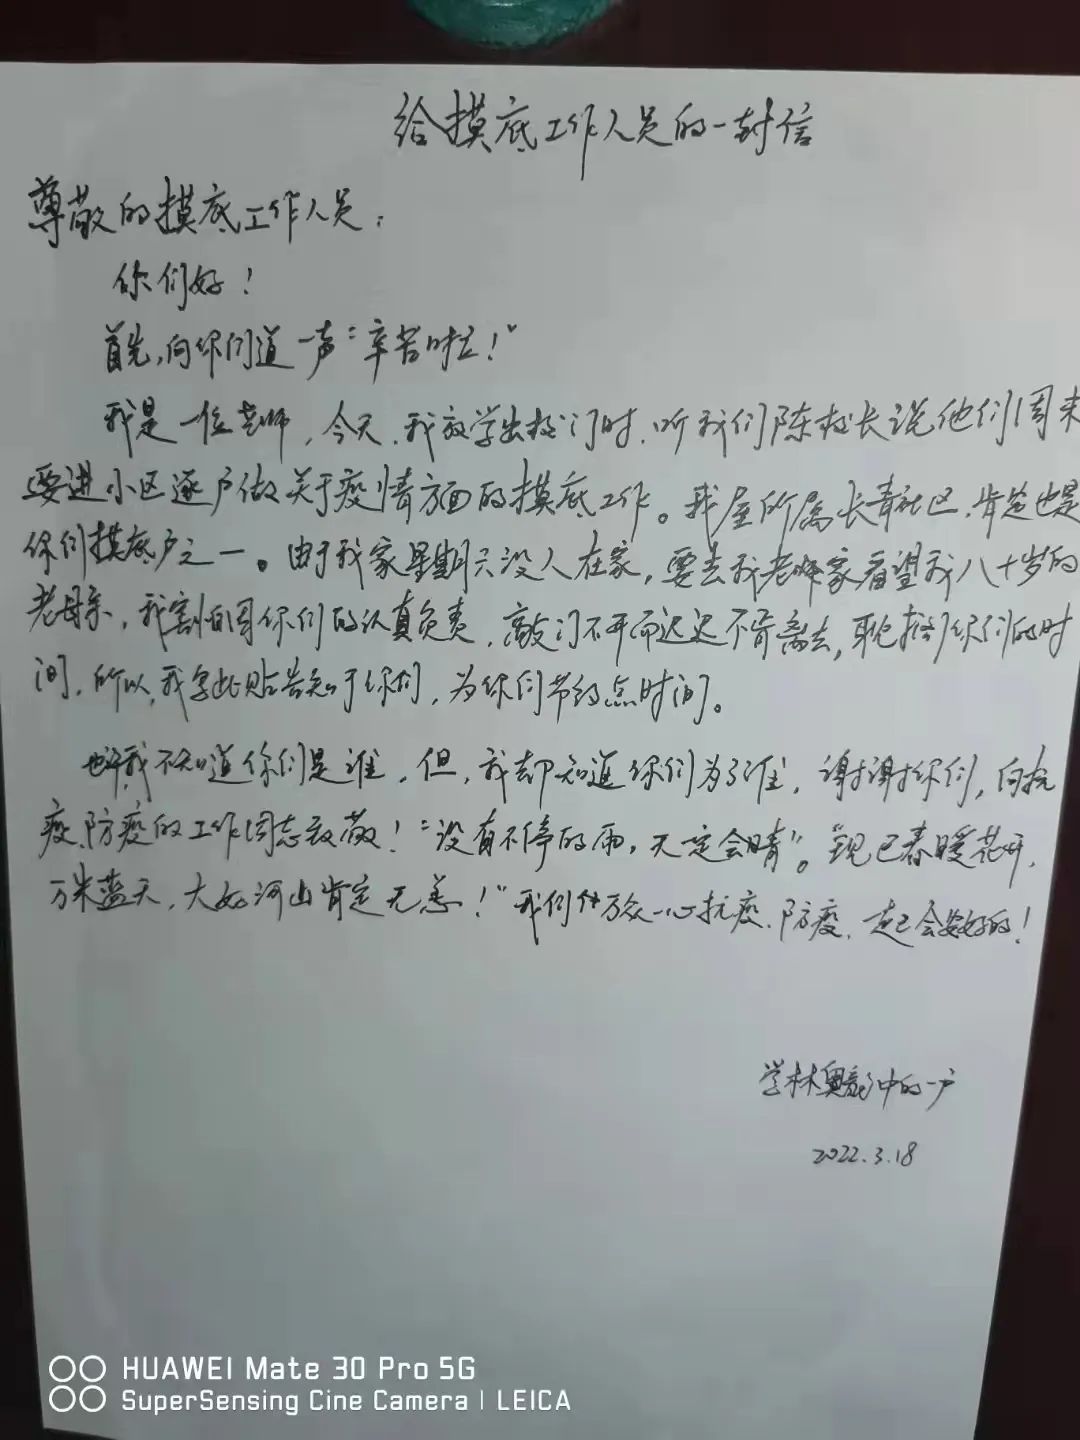 给摸底工作人员的一封信
尊敬的摸底工作人员:
你们好!
首先,向你们道一声:“辛苦啦!”
我是一位老师,今天,我放学出校门时,听我们陈校长说他们周末
要进小区逐户做关于疫情方面的摸底工作。我屋所属长青社区,肯定也是
你们摸底户之一。由于我家星期六没人在家,要去我老家看望我八十岁的
老母亲,我害怕因你们的认真负责,敲门不开而迟迟不肯离去,耽搁你们的时
间,所以,我写此贴告知于你们,为你们节约点时间。
也许我不知道你们是谁,但,我却知道你们为了谁,谢谢你们,向抗
疫、防疫的工作同志致敬!“没有不停的雨,天一定会晴”。现已春暖花开,
万米蓝天,大好河山肯定无恙!”我们万众一心抗疫、防疫,会好的!
学林奥中的一户
2022.3.18
HUAWEI Mate 30 Pro 5G
SuperSensing Cine Camera | LEICA